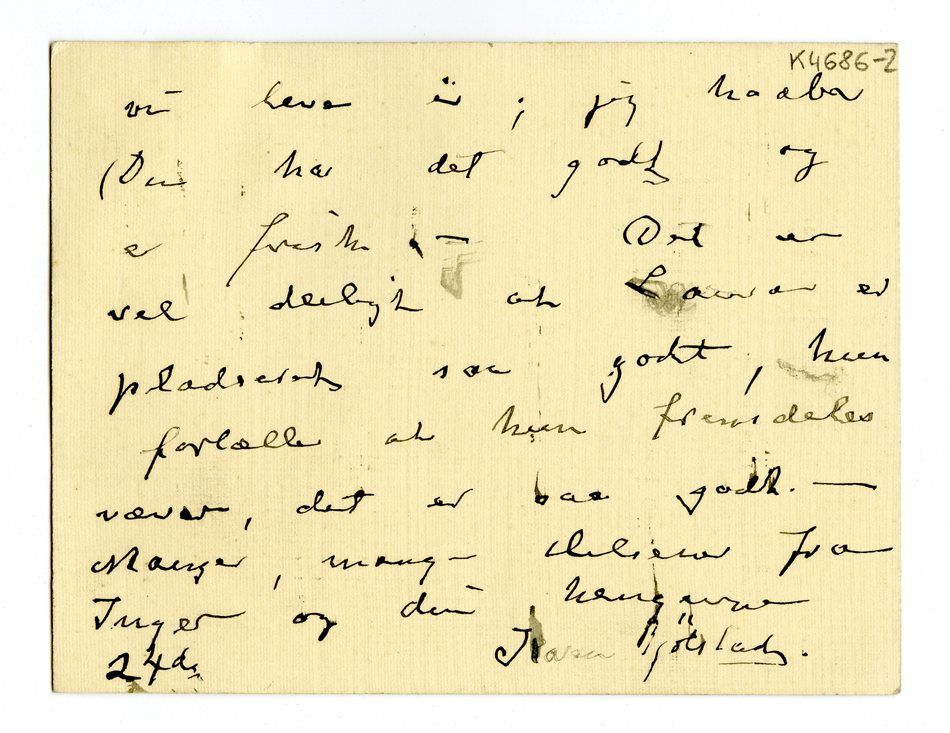 K4686-2
vi leve i; jeg haaber
Du har det godt og
er frisk. — Det er
vel deiligt at Laura er
pladseret saa godt, hun
fortæller at hun fremdeles
væver, det er saa godt. —
Mange, mange hilsener fra
Inger og din hengivne
24de Karen